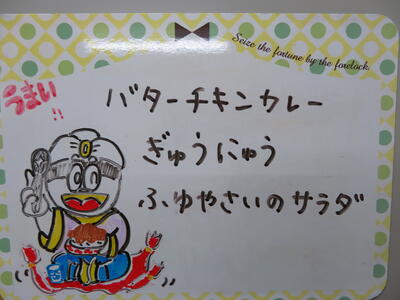 Seize the fortune by the forelock.
うまい!!
バターチキンカレー
ぎゅうにゅう
ふゆやさいのサラダ